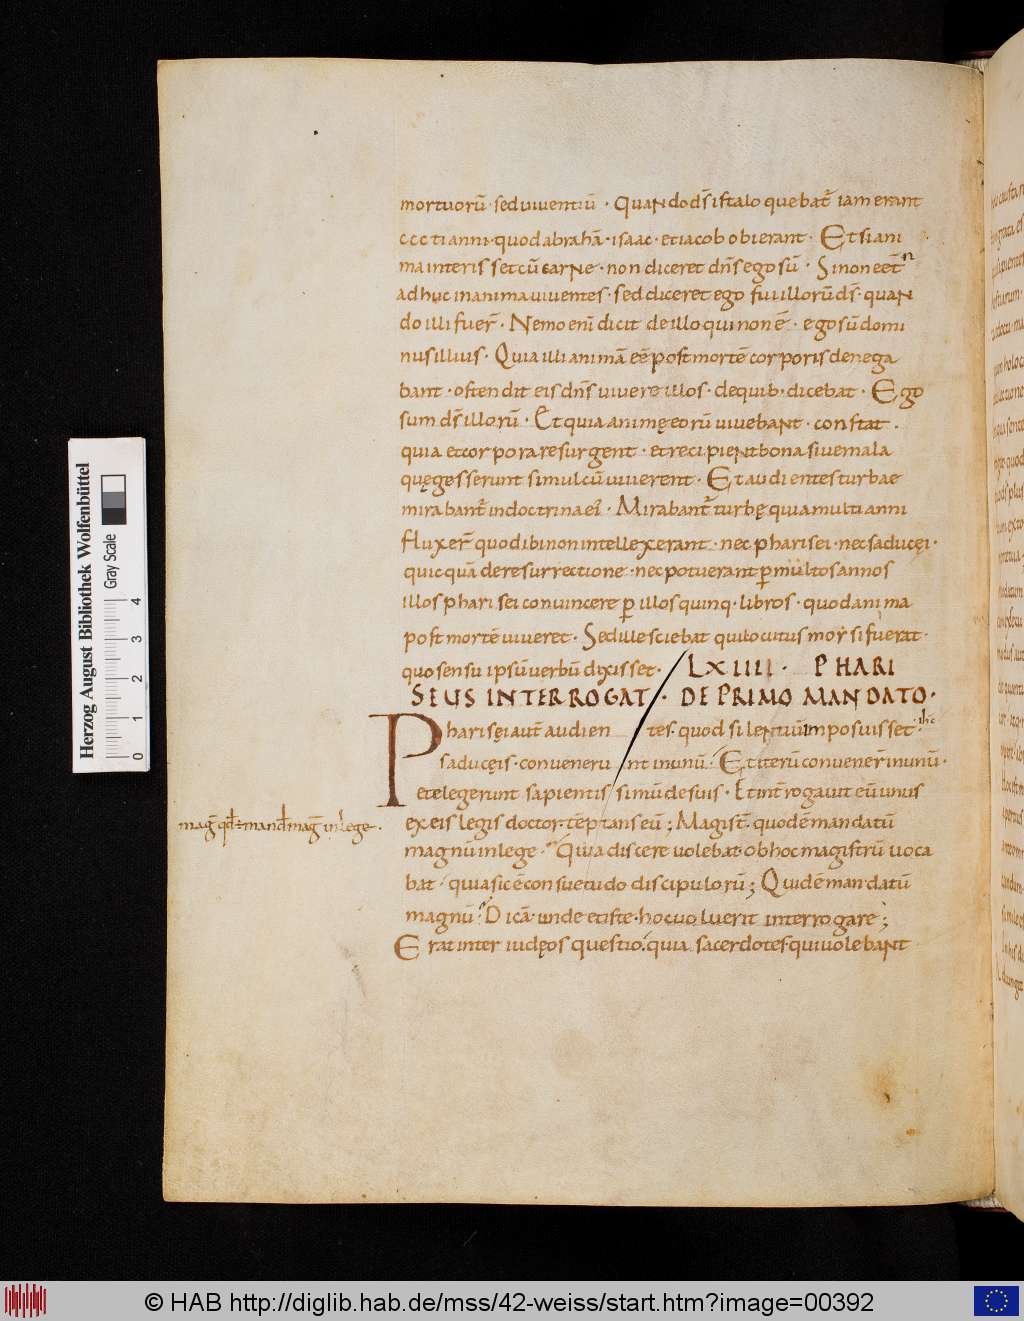 mortuorū· sed uiuentiū · Quando dˉs ista loquebat̄ iam erant
ccc ti anni· quod abrahā· isaac· et iacob obierant· Et si ani
ma interisset cū carne· non diceret dn̄s ego sū· Si non eēt n
adhuc in anima uiuentes· sed diceret ego fui illorū dˉs· quan
do illi fuer̄· Nemo enī dicit de illo qui non ē· ego sū domi
nus illius· Quia illi animā eē post mortē corporis denega
bant· ostendit eis dn̄s uiuere illos· de quib; dicebat· Ego
sum dˉs illorū· Et quia animę eorū uiuebant· constat·
quia et corpora resurgent· et recipient bona siue mala
quę gesserunt simul cū uiuerent· Et audientes turbae
mirabant̄ in doctrina ei᾽· Mirabant̄ turbę quia multi anni
fluxer̄ quod ibi non intellexerant· nec pharisei· nec saducęi·
quicquā de resurrectione· nec potuerant p̄ multos annos
illos pharisei conuincere p̄ illos quinq· libros· quod anima
post mortē uiueret· Sed ille sciebat qui locutus mor̄ si fuerat·
quo sensu ipsū uerbū dixisset· LXIIII· PHARI
SEUS INTERROGAT· DE PRIMO MANDATO·
Pharisęi aut̄ audientes· quod silentiū imposuisset ihc
saducęis· conuenerunt in unū· Et iterū conuener̄ in unū·
et elegerunt sapientissimū de suis· Et int̄rogauit eū unus
ex eis legis doctor tēptans eū; Magist̄ quod ē mandatū
maḡ qd ē mand maḡ in lege·
magnū in lege· Quia discere uolebat ob hoc magistrū uoca
bat· quia sic ē consuetudo discipulorū; Quid ē mandatū
magnū· Dicā unde et iste· hoc uoluerit interrogare;
Erat inter iudęos questio· quia sacerdotes qui uolebant
Herzog August Bibliothek Wolfenbüttel
Gray Scale
0 1 2 3 4
© HAB http://diglib.hab.de/mss/42-weiss/start.htm?image=00392